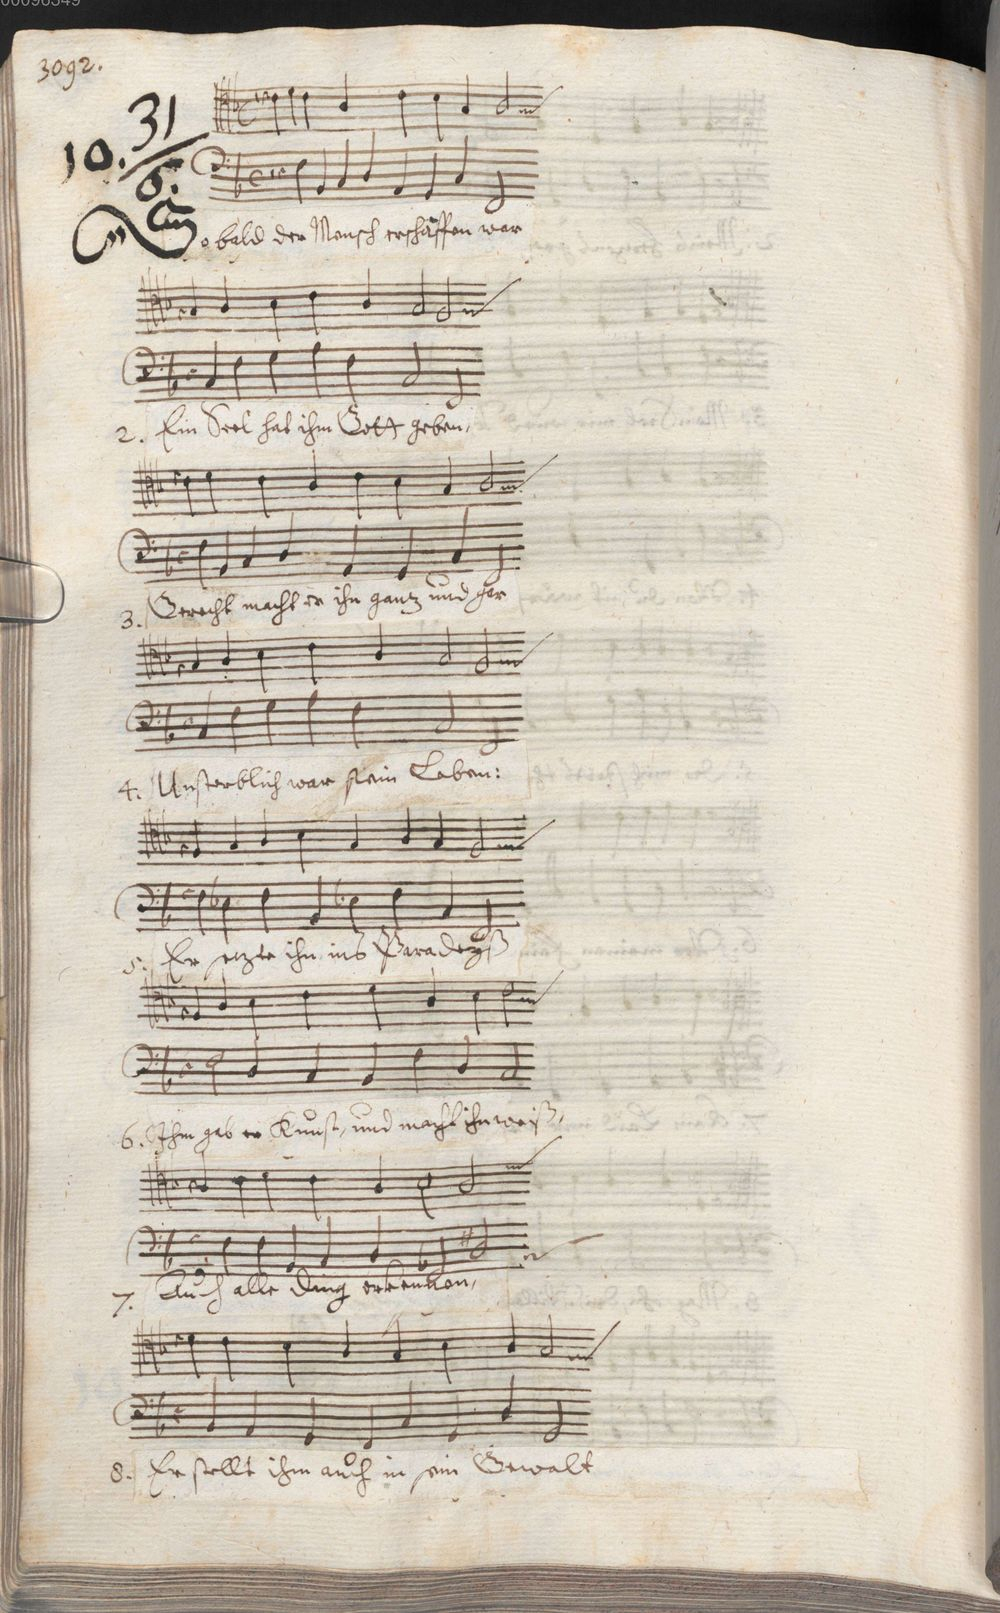 00096349
3092.
10. 31
6.
So bald der Mensch erschaffen war
2. Ein Seel hat ihm Gott geben,
3. Gerecht macht er ihn gantz und gar
4. Unsterblich war sein Leben:
5. Er setzte ihn ins Paradeyß
6. Ihm gab er Kunst, und macht ihn weiß,
7. Auch alle Ding erkennen,
8. Er stellt ihm auch in sein Gewalt